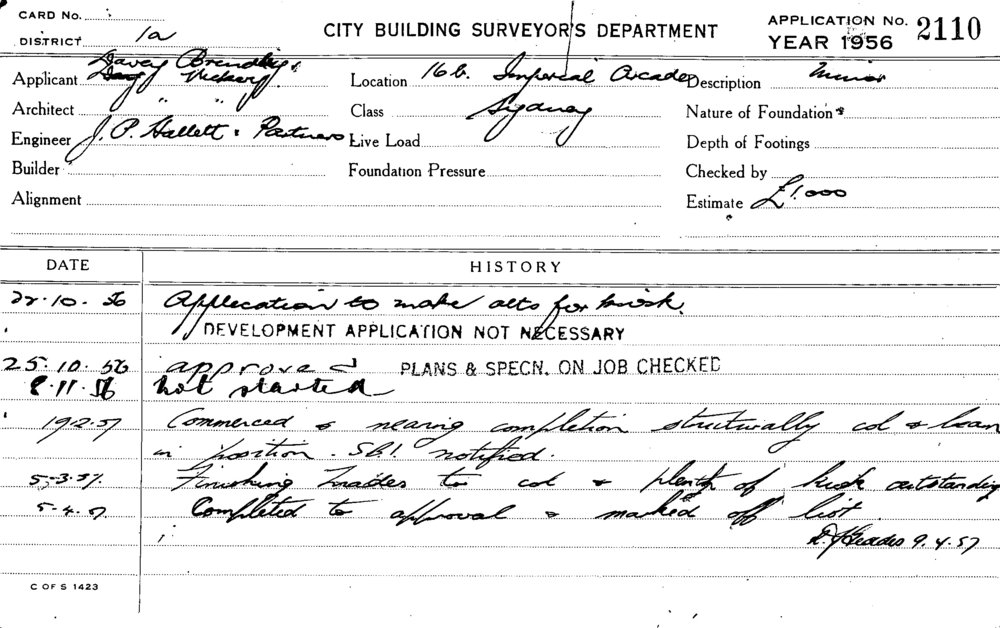 CARD No.
DISTRICT 1a
CITY BUILDING SURVEYOR'S DEPARTMENT
APPLICATION No. 2110
YEAR 1956
Applicant Davey Brindley & Vickery
Location 16b. Imperial Arcade
Description Minor
Architect " "
Class Sydney
Nature of Foundations
Engineer J. P. Hallett & Partners
Live Load
Depth of Footings
Builder
Foundation Pressure
Checked by
Alignment
Estimate £1,000
DATE HISTORY
22.10.56 Application to make alts for kiosk.
DEVELOPMENT APPLICATION NOT NECESSARY
25.10.56 approved PLANS & SPECN. ON JOB CHECKED
8.11.56 not started
19.2.57 Commenced & nearing completion structurally col & beam
in position. S.B.I. notified.
5.3.57. Finishing trades to col & of kiosk outstanding
5.4.57 Completed to approval & marked off list.
9.4.57
C OF S 1423